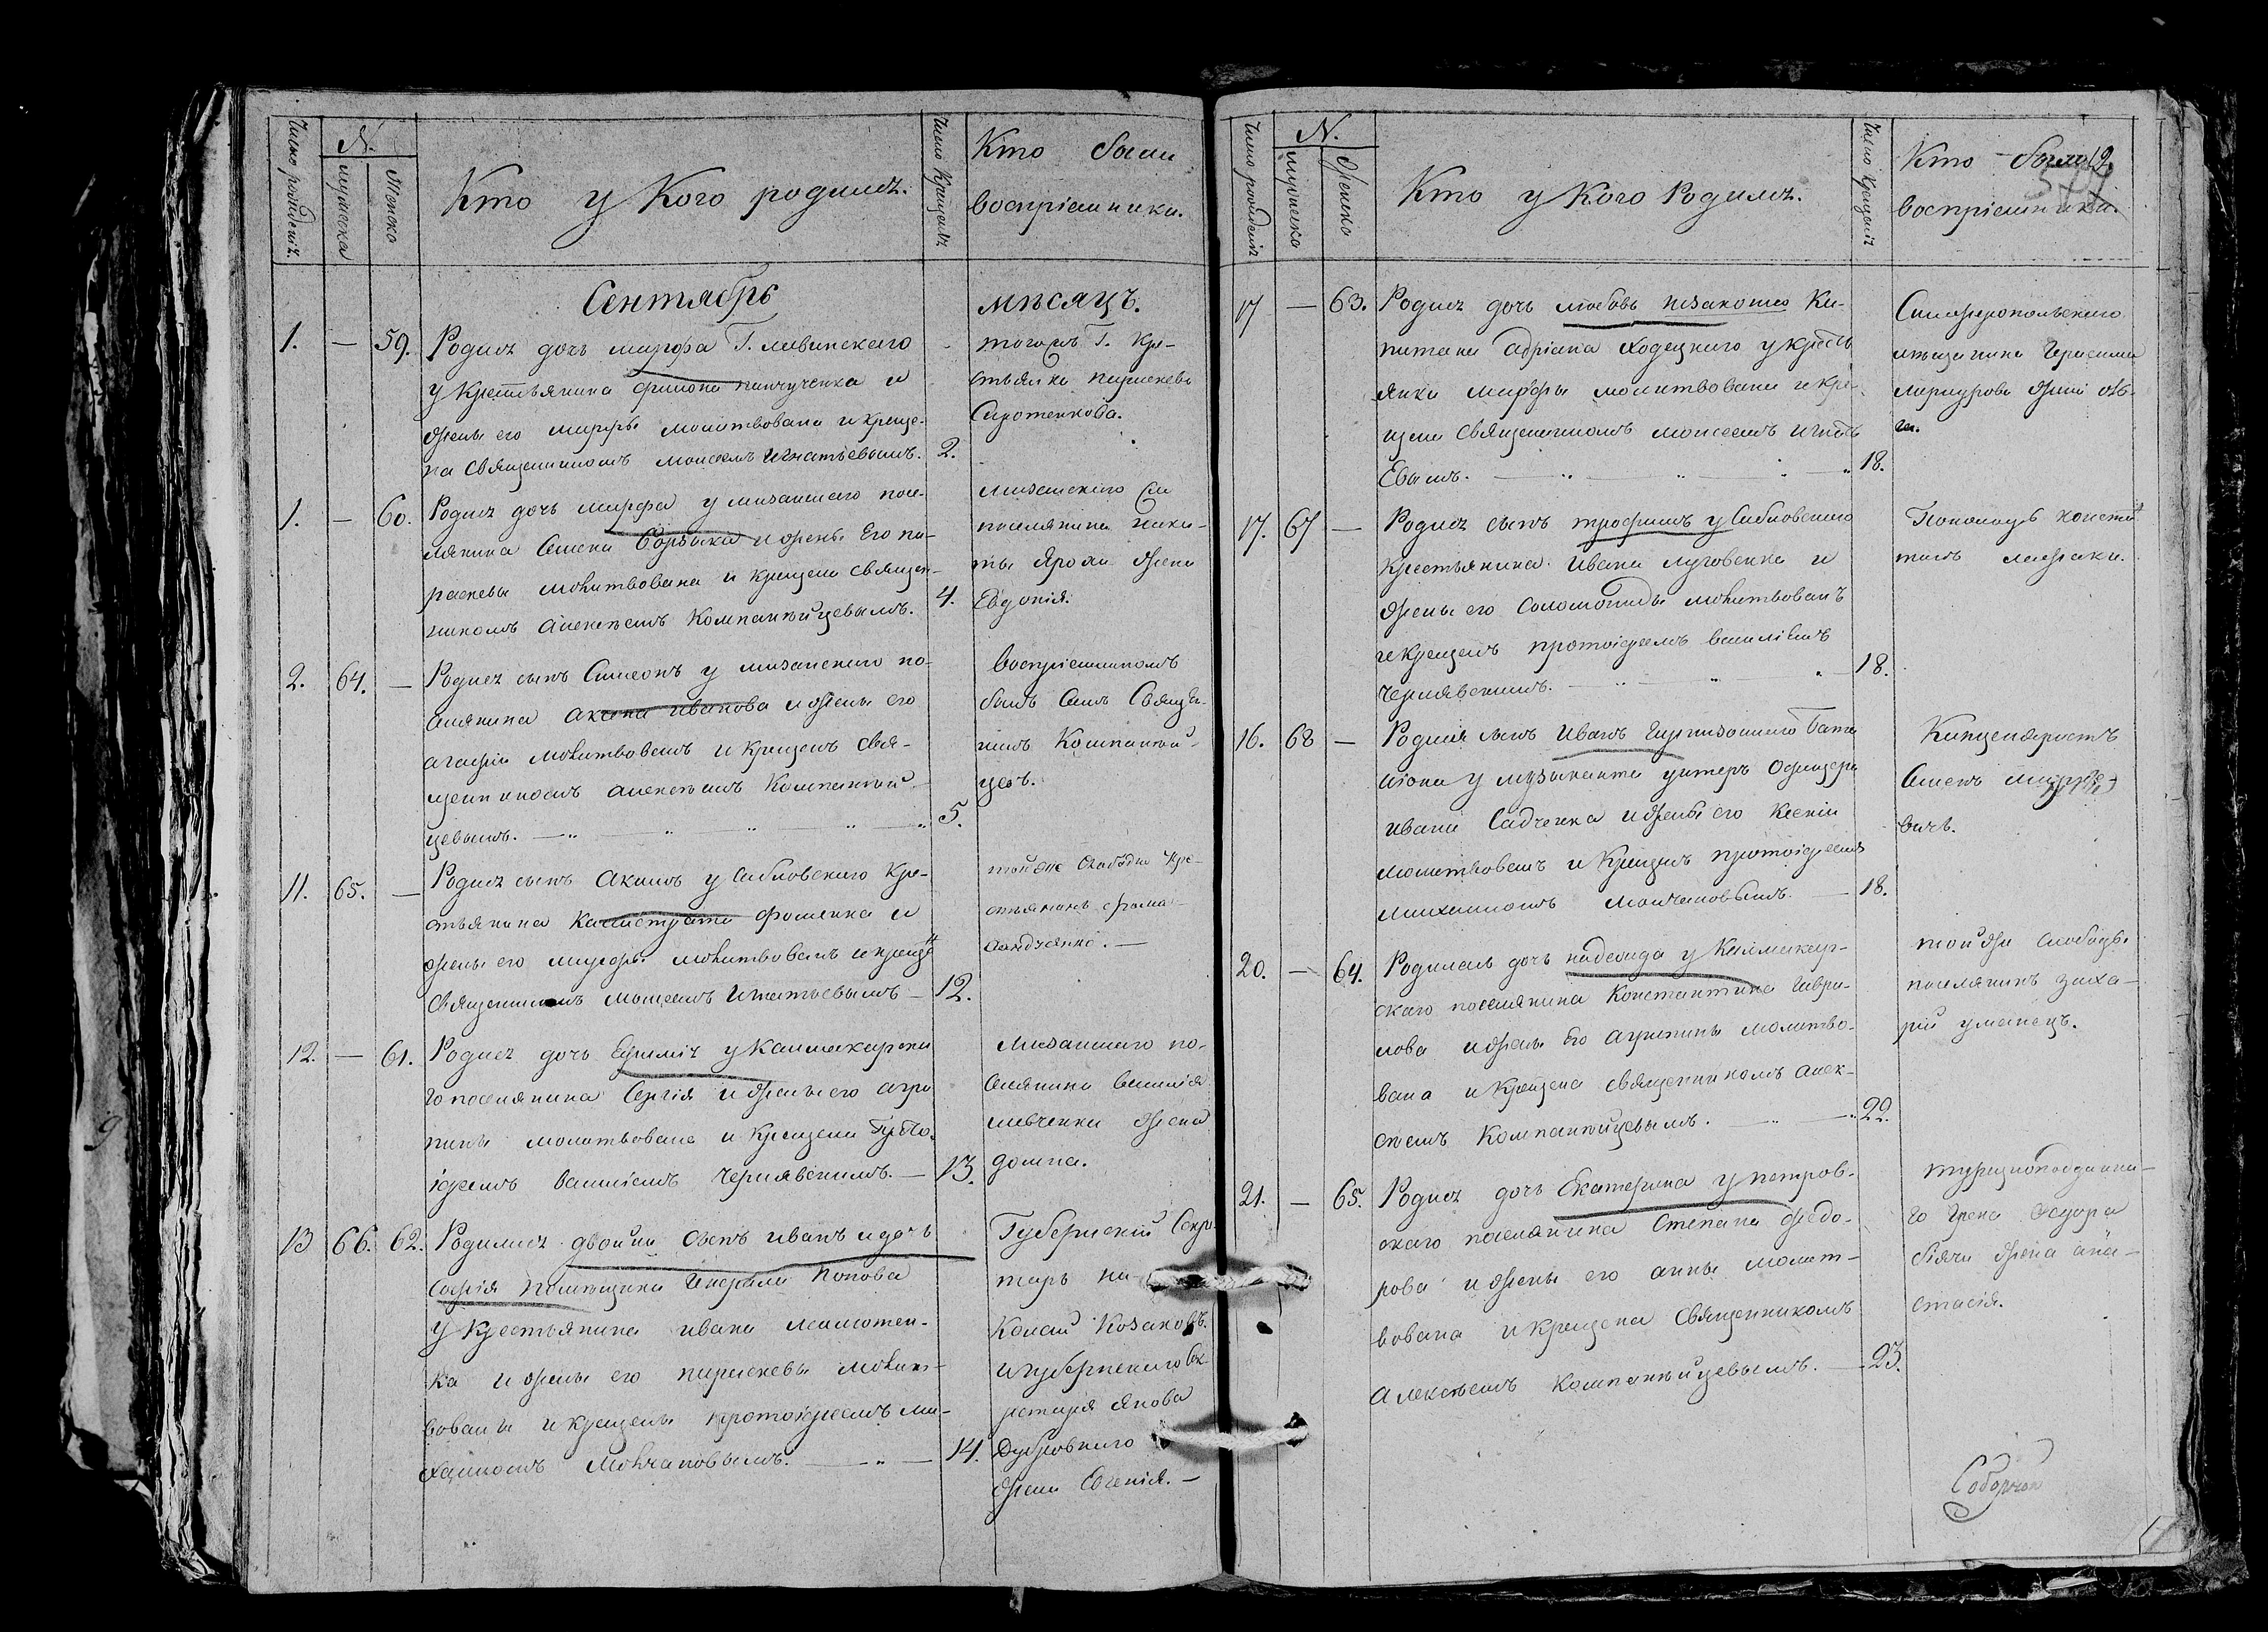 Число рожденія.
N.
мужеска
Женска
Кто у Кого родился.
Число Крещенія
Кто были
воспріемники.
Сентябрь мѣсяцъ.
1. — 59. Родилась дочь марфа Г.
у Крестьянина и
жены его марфы молитвована и креще-
на священникомъ моисеемъ Игнатьевымъ. 2.
тогожъ Г. Кре-
стьянка параскева
Сиротенкова.
1. — 60. Родилась дочь марфа у посе-
лянина Семена и жены Его па-
раскевы молитвована и крещена священ-
никомъ алексѣемъ Компанѣйцевымъ. 4.
поселянина ники-
ты Ярохи жена
Евдокія.
2. 64. — Родился сынъ Симеонъ у по-
селянина иванова и жены его
агафіи молитвованъ и крещенъ свя-
щенникомъ алексѣемъ Компанѣй-
цевымъ. 5.
воспріемникомъ
былъ Самъ Священ-
никъ Компанѣй-
цевъ.
11. 65. — Родился сынъ Акимъ у Кре-
стьянина Калистрата фоменка и
жены его марфы молитвованъ и крещенъ
священникомъ моисеемъ Игнатьевымъ — 12.
той же Слободы Кре-
стьянинъ
12. — 61. Родилась дочь у
го поселянина Сергія и жены его агри-
пины молитвована и крещена Прото-
іереемъ василіемъ Чернявскимъ. — 13.
по-
селянина василія
левченка жена
домна.
13 66. 62. Родились двойни сынъ иванъ и дочь
софія помѣщика Попова
у Крестьянина ивана
ка и жены его параскевы молит-
вованы и крещены протоіереемъ ми-
хаиломъ Молчановымъ. — 14.
Губернскій Секре-
тарь ни-
колай Козаковъ.
и губернскаго Сек-
ретаря Якова
Дубровнаго
жена Евгенія. —
Число рожденія
N.
мужеска
Женска
Кто у Кого Родился.
Число Крещенія
Кто были
воспріемники.
17 — 63. Родилась дочь любовь незаконно Ка-
питана Адріана Ходецкаго у крестья-
янки марфы молитвована и кре-
щена Священникомъ моисеемъ Игнать-
Евымъ. 18.
Симферопольскаго
мѣщанина Герасима
жена
17. 67 — Родился сынъ трофимъ у
Крестьянина Ивана луговенка и
жены его соломониды молитвованъ
и крещенъ протоіереемъ василіемъ
чернявскимъ. 18.
Пономарь
16. 68 — Родился сынъ Иванъ Бата-
ліона у музыканта унтеръ Офицера
ивана Садченка и жены его Ксеніи
молитвованъ и Крещенъ протоіереемъ
михаиломъ молчановымъ. — 18.
Канцеляристъ
Семенъ
вичъ.
20. — 64. Родилась дочь надежда у
скаго поселянина Константина Гаври-
лова и жены Его агрипины молитво-
вана и Крещена священникомъ алек-
сѣемъ Компанѣйцевымъ. 22.
той же слободы
поселянинъ заха-
рій уманецъ.
21. — 65. Родилась дочь Екатерина у петров-
скаго поселянина Степана федо-
рова и жены его анны молит-
вована и крещена Священникомъ
Алексѣемъ Компанѣйцевымъ. — 23.
турецкоподданна-
го Грека
жена ана-
стасія.